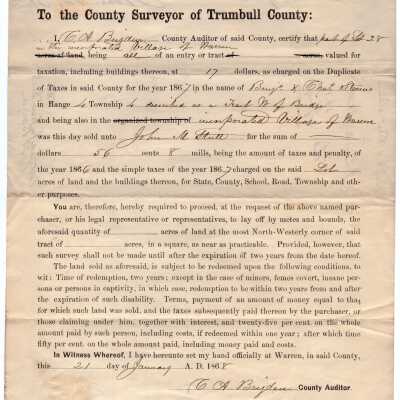 To the County Surveyor of Trumbull County:
I, C A Brigden County Auditor of said County, certify that part of Lot 28
in the incorporated Village of Warren
acres of land, being all of an entry or tract of acres, valued for
taxation, including buildings thereon, at 17 dollars, as charged on the Duplicate
of Taxes in said County for the year 1867 in the name of
in Range 4 Township 4 described as a W of
and being also in the organized township of incorporated Village of Warren
was this day sold unto John M Stull for the sum of
dollars 56 cents 8 mills, being the amount of taxes and penalty, of
the year 1866 and the simple taxes of the year 1867 charged on the said Lot
acres of land and the buildings thereon, for State, County, School, Road, Township and oth-
er purposes.
You are, therefore, hereby required to proceed, at the request of the above named pur-
chaser, or his legal representative or representatives, to lay off by metes and bounds, the
aforesaid quantity of acres of land at the most North-Westerly corner of said
tract of acres, in a square, as near as practicable. Provided, however, that
such survey shall not be made until after the expiration of two years from the date hereof.
The land sold as aforesaid, is subject to be redeemed upon the following conditions, to
wit: Time of redemption, two years; except in the case of minors, femes covert, insane per-
sons or persons in captivity, in which case, redemption to be within two years from and after
the expiration of such disability. Terms, payment of an amount of money equal to that
for which such land was sold, and the taxes subsequently paid thereon by the purchaser, or
those claiming under him, together with interest, and twenty-five per cent. on the whole
amount paid by such person, including costs, if redeemed within one year; after which time
fifty per cent. on the whole amount paid, including money paid and costs.
In Witness Whereof, I have hereunto set my hand officially at Warren, in said County,
this 21 day of January A. D. 1868
C A Brigden County Auditor